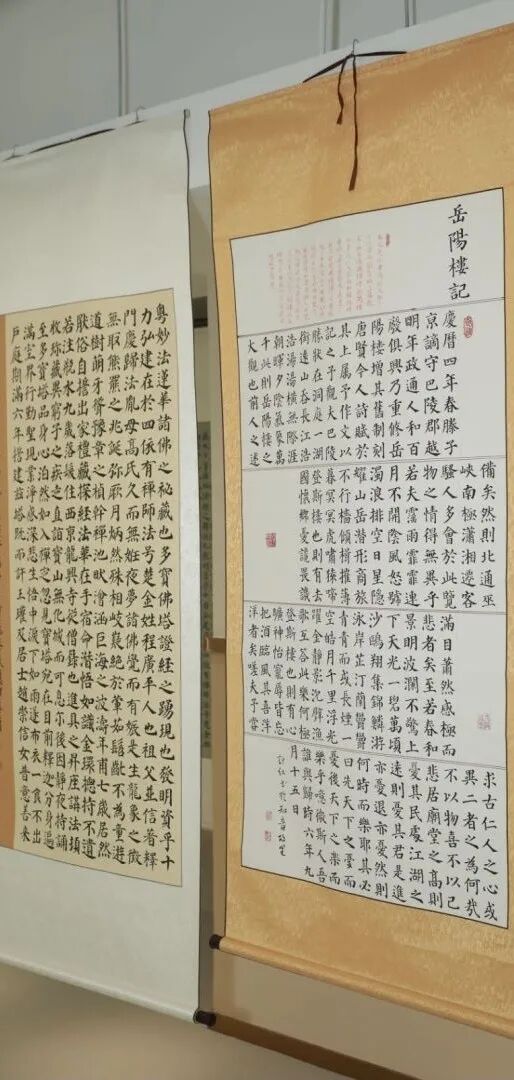 岳陽樓記
慶曆四年春滕子
京謫守巴陵郡越
明年政通人和百
廢俱興乃重修岳
陽樓增其舊制刻
唐賢今人詩賦於
其上属予作文以
記之予觀夫巴陵
勝狀在洞庭一湖
銜遠山吞長江浩
浩湯湯橫無際涯
朝暉夕陰氣象萬
千此則岳陽樓之
大觀也前人之述
備矣然則北通巫
峽南極瀟湘遷客
騷人多會於此覽
物之情得無異乎
若夫霪雨霏霏連
月不開陰風怒號
濁浪排空日星隱
耀山岳潛形商旅
不行檣傾楫摧薄
暮冥冥虎嘯猿啼
登斯樓也則有去
國懷鄉憂讒畏譏
滿目蕭然感極而
悲者矣至若春和
景明波瀾不驚上
下天光一碧萬頃
沙鷗翔集錦鱗游
泳岸芷汀蘭鬱鬱
青青而或長煙一
空皓月千里浮光
耀金靜影沉璧漁
歌互答此樂何極
登斯樓也則有心
曠神怡寵辱皆忘
把酒臨風其喜洋
洋者矣嗟夫予嘗
求古仁人之心或
異二者之為何哉
不以物喜不以己
悲居廟堂之高則
憂其民處江湖之
遠則憂其君是進
亦憂退亦憂然則
何時而樂耶其必
曰先天下之憂而
憂後天下之樂而
樂乎噫微斯人吾
誰與歸時六年九
月十五日
粵妙法蓮華諸佛之秘藏也多寶佛塔證經之踴現也發明資乎十
力弘建在於四依有禪師法号楚金姓程廣平人也祖父並信著釋
門慶歸法胤母高氏久而無妊夜夢諸佛覺而有娠是生龍象之徵
無取熊羆之兆誕弥厥月炳然殊相岐嶷絕於葷茹髫齔不為童遊
道樹萌牙聳豫章之楨幹禪池畎澮涵巨海之波濤年甫七歲居然
厭俗自誓出家禮藏探經法華在手宿命潛悟如識金環捴持不遺
若注瓶水九歲落髮住西京龍興寺從僧籙也進具之年昇座講法頓
收珍藏異窮子之疾走直詣寶山無化城而可息尔後因靜夜持誦
至多寶塔品身心泊然如入禪定忽見寶塔宛在目前釋迦分身遍
滿空界行勤聖現業淨感深悲生悟中淚下如雨遂布衣一食不出
戶庭期滿六年誓建茲塔既而許王瓘及居士趙崇信女普意善來